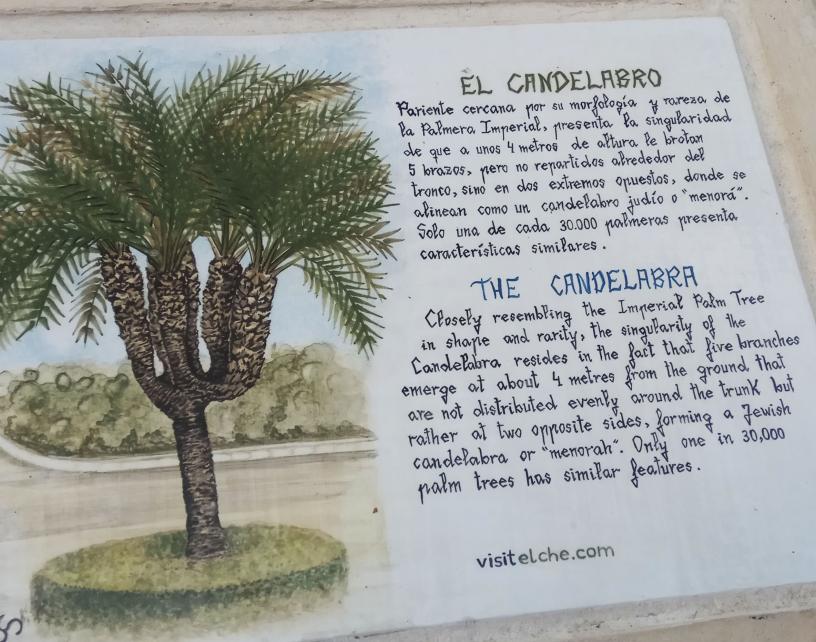 EL CANDELABRO
Pariente cercana por su morfología y rareza de
la Palmera Imperial, presenta la singularidad
de que a unos 4 metros de altura le brotan
5 brazos, pero no repartidos alrededor del
tronco, sino en dos extremos opuestos, donde se
alinean como un candelabro judío o "menorá".
Solo una de cada 30.000 palmeras presenta
características similares.
THE CANDELABRA
Closely resembling the Imperial Palm Tree
in shape and rarity, the singularity of the
Candelabra resides in the fact that five branches
emerge at about 4 metres from the ground that
are not distributed evenly around the trunk but
rather at two opposite sides, forming a Jewish
candelabra or "menorah". Only one in 30,000
palm trees has similar features.
visitelche.com